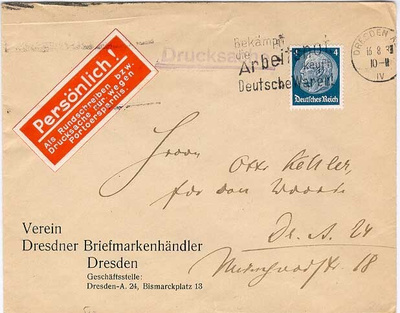 Persönlich!
Als Rundschreiben bzw.
Drucksache nur wegen
Portoersparnis.
Drucksache
Bekämpf
die
Arbeitsnot
kauft
Deutsche Waren!
4
Deutsches Reich
DRESDEN A
16.8.33
10-11
IV
Herrn Otto Keller,
Dr. A. 24
18
Verein
Dresdner Briefmarkenhändler
Dresden
Geschäftsstelle:
Dresden-A. 24, Bismarckplatz 13